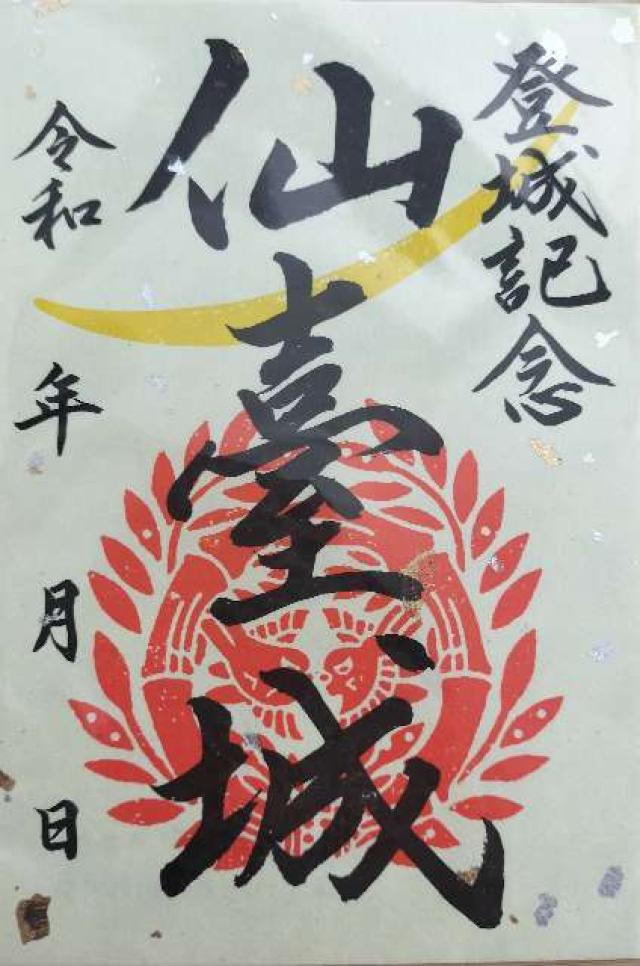 登城記念
仙臺城
令和 年 月 日